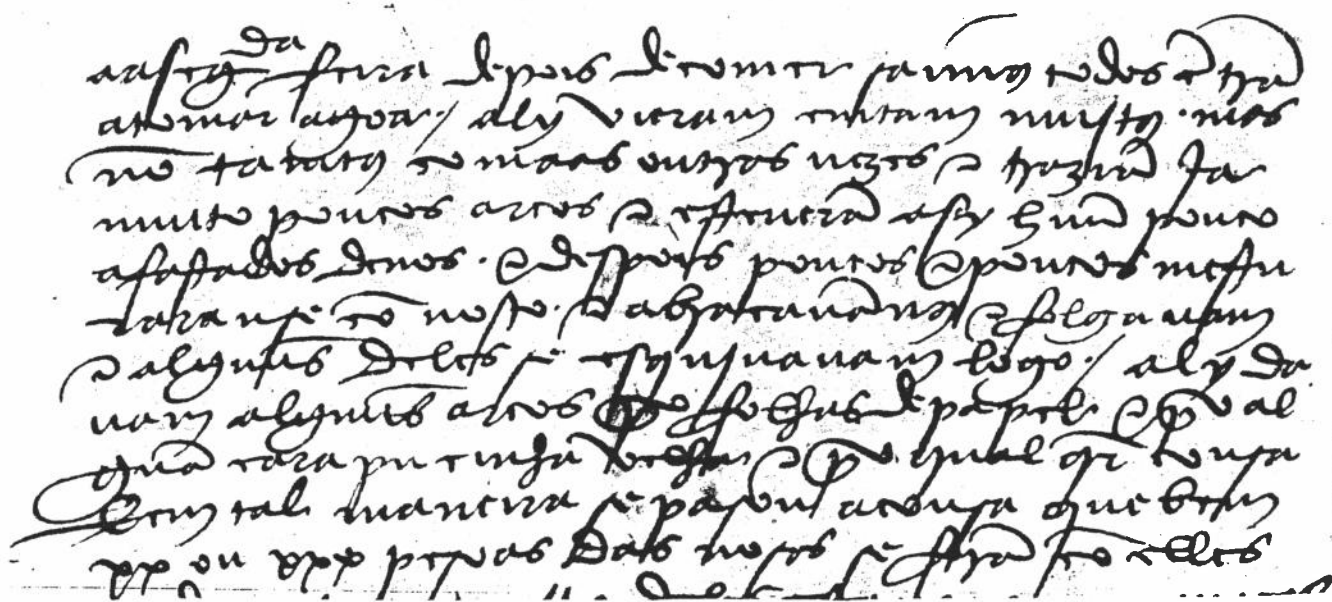 aa segda feira depois de comer saimos todos ē trã
a tomar agoa / aly vieram emtam mujtos · mas
nõ tã tatos como aas outras uezes e traziã Ja
muito poucos arcos e esteuerã asy huũ pouco
afastados de nos · e despois poucos e poucos mestu
raranse cõ nosco · e abraçauãnos e folgauam
e alguũs deles se esquiuauam logo / aly da
uam alguũs arcos por folhas de papel · e por al
guũa carapucinha velha e por qual qr cousa
e em tal maneira se pasou a cousa que bem
xx ou xxx pesoas das nosas se forã cõ elles